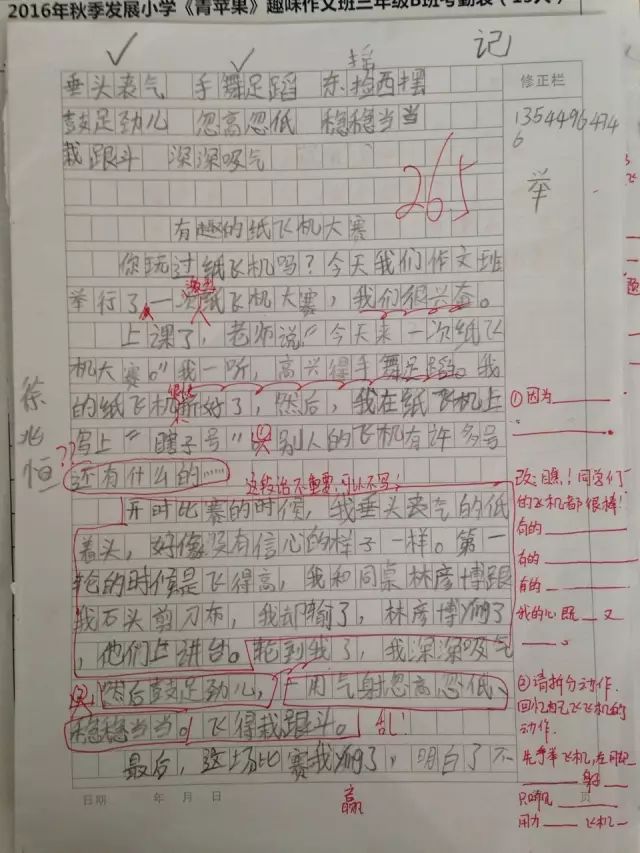 2016年秋季发展小学《青苹果》趣味作文班三年级B班考勤表（15人）
摇 记
垂头丧气 手舞足蹈 东捡西摆
鼓足劲儿 忽高忽低 稳稳当当
栽跟斗 深深吸气
修正栏
13544964946
举
265
有趣的纸飞机大赛
你玩过纸飞机吗？今天我们作文班
举行了一次纸飞机大赛，我们很兴奋。
上课了，老师说“今天来一次纸飞
机大赛。”我一听，高兴得手舞足蹈。我
的纸飞机折好了，然后，我在纸飞机上
很快
写上“瞎子号”别人的飞机有许多号
还有什么的……
??
徐兆恒
①因为
这段话不重要，可以不写！
开时比赛的时候，我垂头丧气的低
着头，好像没有信心的样子一样。第一
轮的时候是飞得高，我和同桌林彦博跟
我石头剪刀布，我却输了，林彦博贏了
，他们上讲台。轮到我了，我深深吸气
，然后鼓足劲儿，用气射忽高忽低、
稳稳当当。飞得栽跟斗。乱！
最后，这场比赛我贏了，明白了不
赢
改：瞧！同学们
的飞机都很棒！
有的
有的
有的
我的心既 又
②请拆分动作.
回忆自己飞飞机的
动作.
先手举飞机，
只呼
用力 飞机一
日期 年 月 日 页